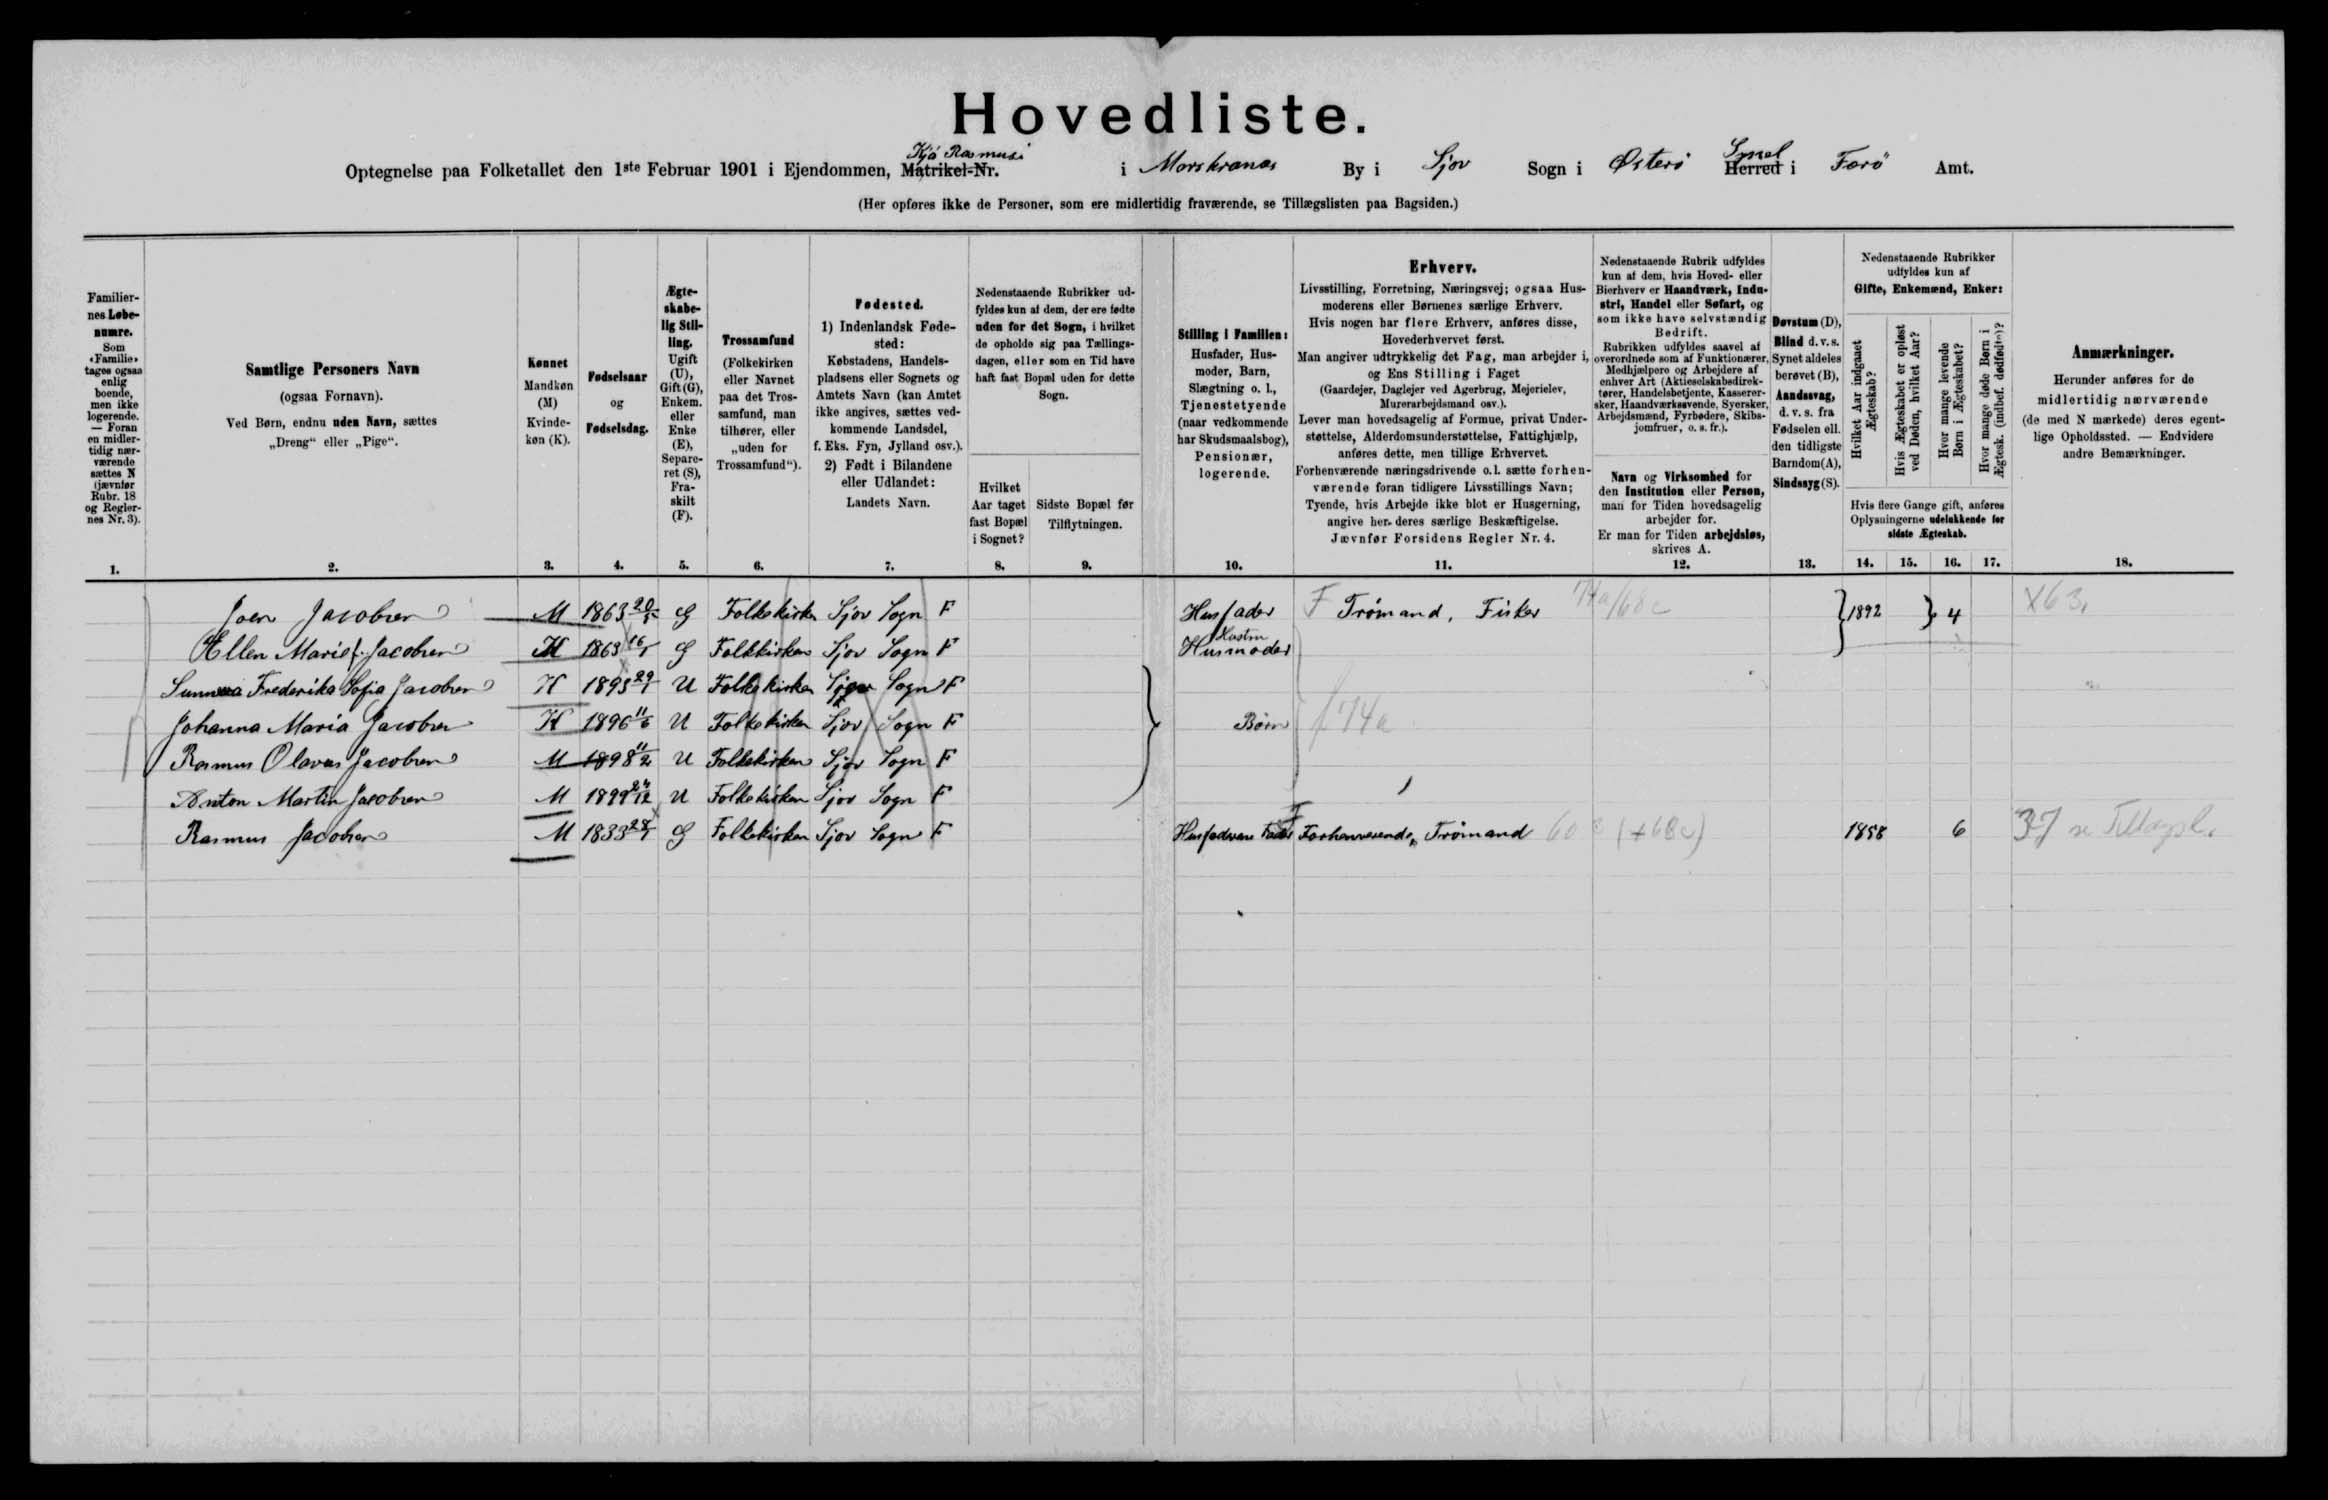 Hovedliste.
Kjá Rasmusi
Optegnelse paa Folketallet den 1ste Februar 1901 i Ejendommen, Matrikel-Nr. i Morskranes By i Sjov Sogn i Østerø Herred i Færö Amt.
(Her opføres ikke de Personer, som ere midlertidig fraværende, se Tillægslisten paa Bagsiden.)
Familiernes Løbenumre.
Som «Familie» tages ogsaa enlig boende, men ikke logerende. — Foran en midlertidig nærværende sættes N (jævnfør Rubr. 18 og Reglernes Nr. 3).
Samtlige Personers Navn
(ogsaa Fornavn).
Ved Børn, endnu uden Navn, sættes
„Dreng“ eller „Pige“.
Kønnet
Mandkøn (M)
Kvindekøn (K).
Fødselsaar
og
Fødselsdag.
Ægteskabelig Stilling.
Ugift (U), Gift (G), Enkem. eller Enke (E), Separeret (S), Fraskilt (F).
Trossamfund
(Folkekirken eller Navnet paa det Trossamfund, man tilhører, eller „uden for Trossamfund“).
Fødested.
1) Indenlandsk Fødested:
Købstadens, Handelspladsens eller Sognets og Amtets Navn (kan Amtet ikke angives, sættes vedkommende Landsdel, f. Eks. Fyn, Jylland osv.).
2) Født i Bilandene eller Udlandet:
Landets Navn.
Nedenstaaende Rubrikker udfyldes kun af dem, der ere fødte uden for det Sogn, i hvilket de opholde sig paa Tællingsdagen, eller som en Tid have haft fast Bopæl uden for dette Sogn.
Hvilket Aar taget fast Bopæl i Sognet?
Sidste Bopæl før Tilflytningen.
Stilling i Familien:
Husfader, Husmoder, Barn, Slægtning o. l., Tjenestetyende (naar vedkommende har Skudsmaalsbog), Pensionær, logerende.
Erhverv.
Livsstilling, Forretning, Næringsvej; ogsaa Husmoderens eller Børnenes særlige Erhverv.
Hvis nogen har flere Erhverv, anføres disse, Hovederhvervet først.
Man angiver udtrykkelig det Fag, man arbejder i, og Ens Stilling i Faget
(Gaardejer, Daglejer ved Agerbrug, Mejerielev, Murerarbejdsmand osv.).
Lever man hovedsagelig af Formue, privat Understøttelse, Alderdomsunderstøttelse, Fattighjælp, anføres dette, men tillige Erhvervet.
Forhenværende næringsdrivende o. l. sætte forhenværende foran tidligere Livsstillings Navn;
Tyende, hvis Arbejde ikke blot er Husgerning, angive her deres særlige Beskæftigelse.
Jævnfør Forsidens Regler Nr. 4.
Nedenstaaende Rubrik udfyldes kun af dem, hvis Hoved- eller Bierhverv er Haandværk, Industri, Handel eller Søfart, og som ikke have selvstændig Bedrift.
Rubrikken udfyldes saavel af overordnede som af Funktionærer, Medhjælpere og Arbejdere af enhver Art (Aktieselskabsdirektører, Handelsbetjente, Kasserersker, Haandværkssvende, Syersker, Arbejdsmænd, Fyrbødere, Skibsjomfruer, o. s. fr.).
Navn og Virksomhed for den Institution eller Person, man for Tiden hovedsagelig arbejder for.
Er man for Tiden arbejdsløs, skrives A.
Døvstum (D), Blind d. v. s. Synet aldeles berøvet (B), Aandssvag, d. v. s. fra Fødselen ell. den tidligste Barndom (A), Sindssyg (S).
Nedenstaaende Rubrikker udfyldes kun af Gifte, Enkemænd, Enker:
Hvilket Aar indgaaet Ægteskab?
Hvis Ægteskabet er opløst ved Døden, hvilket Aar?
Hvor mange levende Børn i Ægteskabet?
Hvor mange døde Børn i Ægtesk. (indbef. dødfødte)?
Hvis flere Gange gift, anføres Oplysningerne udelukkende for sidste Ægteskab.
Anmærkninger.
Herunder anføres for de midlertidig nærværende (de med N mærkede) deres egentlige Opholdssted. — Endvidere andre Bemærkninger.
1. 2. 3. 4. 5. 6. 7. 8. 9. 10. 11. 12. 13. 14. 15. 16. 17. 18.
Joen Jacobsen M 1863 20/5 G Folkekirke Sjov Sogn F Husfader F Trømand, Fisker 74a/68c 1892 4 X63,
Ellen Marie f. Jacobsen K 1863 16/1 G Folkkirken Sjov Sogn F Hustru Husmoder
Sunneva Frederika Sofia Jacobsen K 1893 29/1 U Folkekirken Sjov Sogn F
Johanna Maria Jacobsen K 1896 11/6 U Folkekirken Sjov Sogn F Børn f 74a
Rasmus Olavus Jacobsen M 1898 11/2 U Folkekirken Sjov Sogn F
Anton Martin Jacobsen M 1899 24/12 U Folkekirken Sjov Sogn F
Rasmus Jacobsen M 1833 28/1 G Folkekirken Sjov Sogn F Husfaderens Fader Forhenværende Trømand 60 c (+68c) 1858 6 37 se Tillægsl.